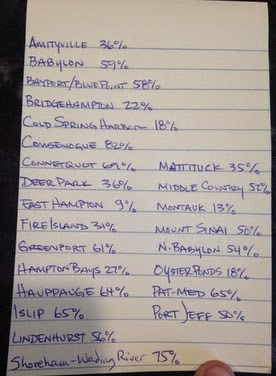 AMITYVILLE 36%
BABYLON 59%
BAYPORT/BLUEPOINT 58%
BRIDGEHAMPTON 22%
COLD SPRING HARBOR 18%
COMSEWOGUE 82%
CONNETQUOT 69% MATTITUCK 35%
DEER PARK 36% MIDDLE COUNTRY 52%
EAST HAMPTON 9% MONTAUK 13%
FIRE ISLAND 31% MOUNT SINAI 50%
GREENPORT 61% N. BABYLON 54%
HAMPTON BAYS 27% OYSTERPONDS 18%
HAUPPAUGE 64% PAT-MED 65%
ISLIP 65% PORT JEFF 50%
LINDENHURST 56%
Shoreham-Wading River 75%